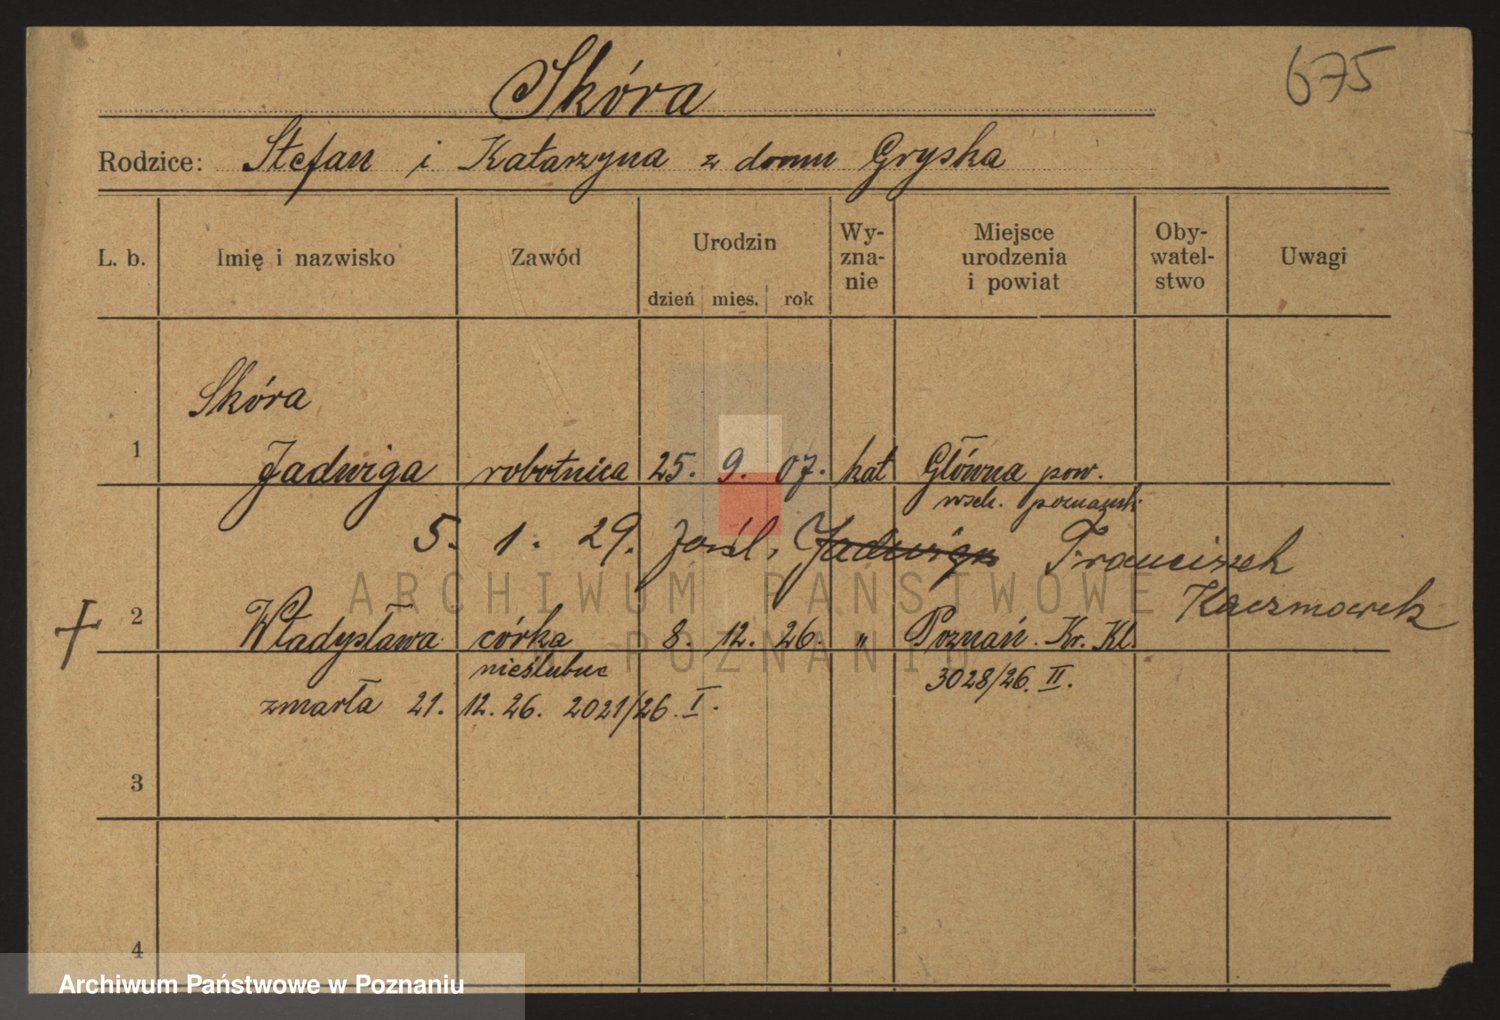 675
Skóra
Rodzice: Stefan i Katarzyna z domu Gryska
L. b. Imię i nazwisko Zawód Urodzin dzień mies. rok Wy-zna-nie Miejsce urodzenia i powiat Oby-watel-stwo Uwagi
Skóra
1 Jadwiga robotnica 25. 9. 07. kat Główna pow.
wsch. poznański
5. 1. 29. pośl. Jadwiga Franciszek
Kaczmarek
2 Władysława córka 8. 12. 26. " Poznań. Kr. Kl.
nieślubne 3028/26. II.
zmarła 21. 12. 26. 2021/26. I.
3
4
ARCHIWUM PAŃSTWOWE
POZNANIU
Archiwum Państwowe w Poznaniu